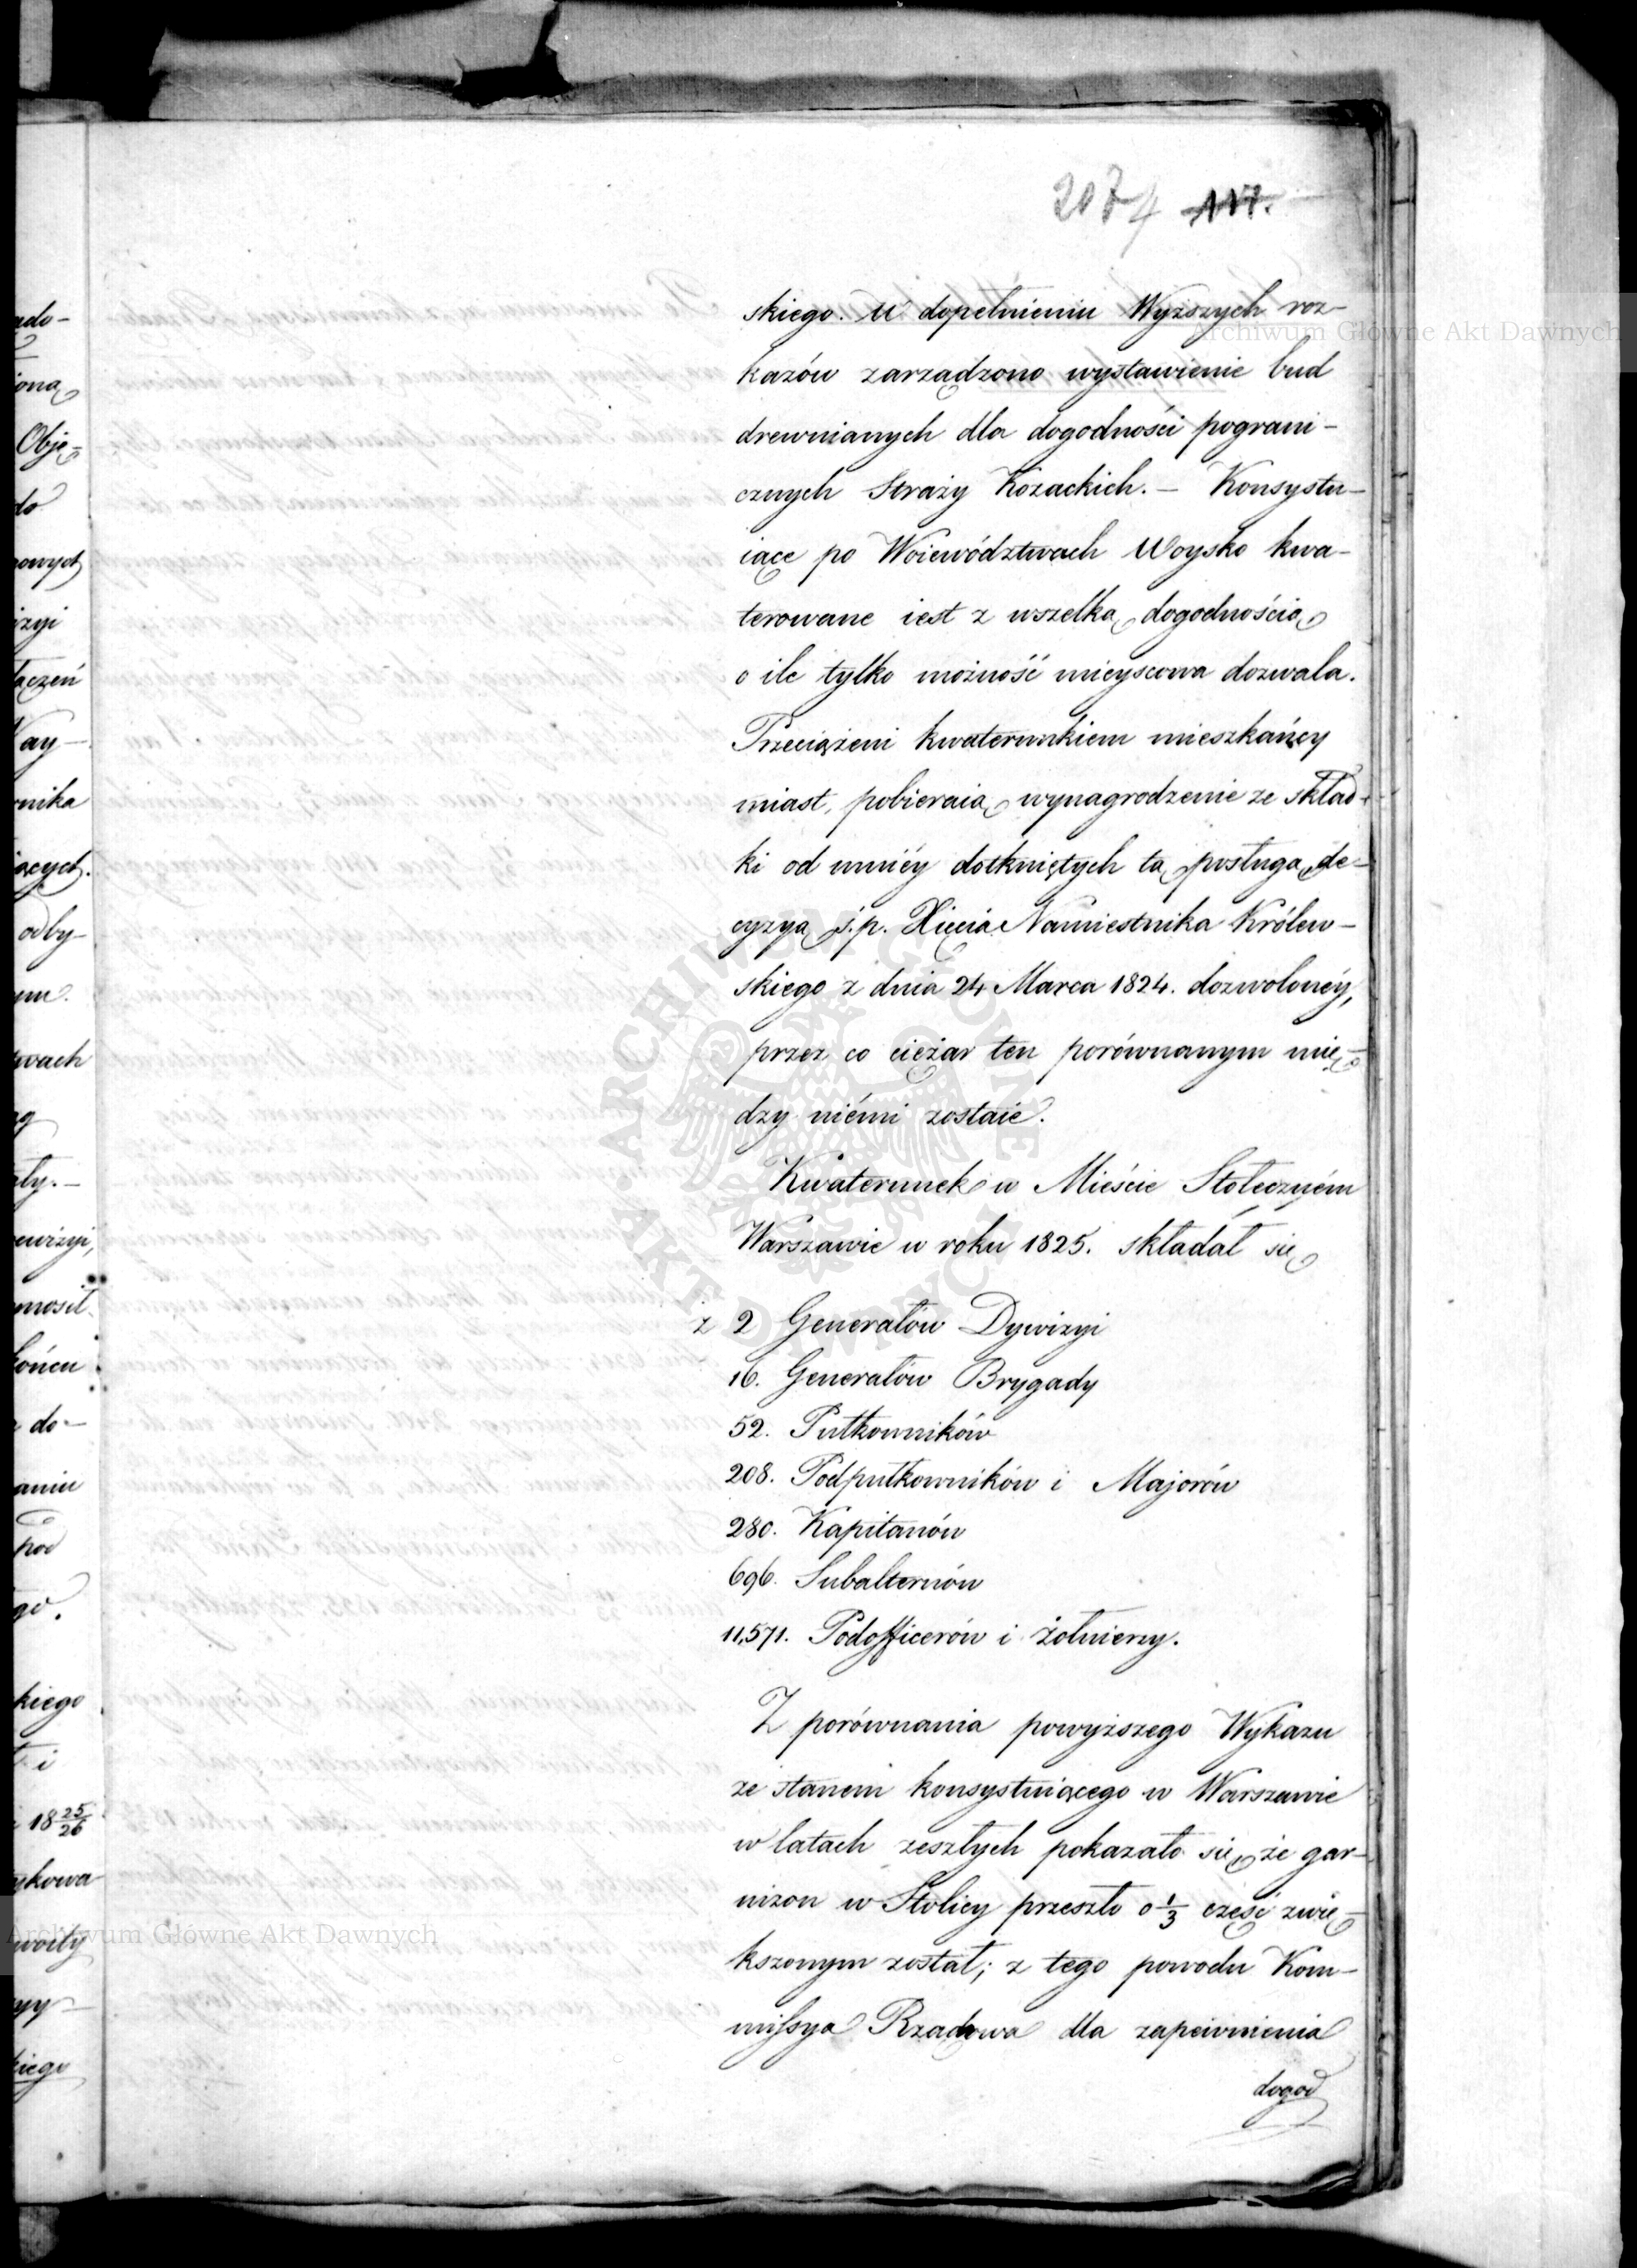 207 4 117.
skiego. W dopełnieniu Wyższych roz-
kazów zarządzono wystawienie bud
drewnianych dla dogodności pograni-
cznych Straży Kozackich. - Konsystu-
iące po Woiewództwach Woysko kwa-
terowane iest z wszelką dogodnością
o ile tylko możność mieyscowa dozwala.
Przeciążeni kwaterunkiem mieszkańcy
miast, pobieraią wynagrodzenie ze skład-
ki od mniéy dotkniętych tą posługą de-
cyzyą ś.p. Xięcia Namiestnika Królew-
skiego z dnia 24 Marca 1824. dozwolonéy,
przez co ciężar ten porównanym mię-
dzy niémi zostaie.
Kwaterunek w Mieście Stołeczném
Warszawie w roku 1825. składał się
z 2 Generałów Dywizyi
16. Generałów Brygady
52. Pułkowników
208. Podpułkowników i Majorów
280. Kapitanów
696. Subalternów
11,571. Podofficerów i żołnierzy.
Z porównania powyższego Wykazu
ze stanem konsystuiącego w Warszawie
w latach zeszłych pokazało się, że gar-
nizon w Stolicy przeszło o 1/3 część zwię-
kszonym został; z tego powodu Kom-
missya Rządowa dla zapewnienia
dogod
ado-
ioną
Obję-
do
owych
izyi
łączeń
Nay-
nika
iących.
odby-
ym.
twach
ły.-
ewizyi,
nosił
końcu
do-
aniu
pod
go.
kiego
i
18 25/26
ykowa
kiego
Archiwum Główne Akt Dawnych
Archiwum Główne Akt Dawnych
ARCHIWUM GŁÓWNE AKT DAWNYCH